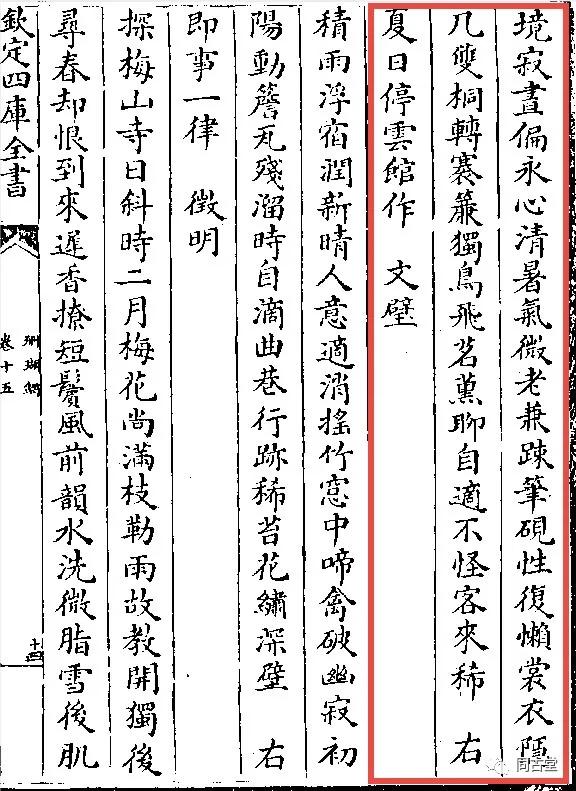 境寂晝偏永心清暑氣微老兼踈筆硯性復懶裳衣隱
几雙桐轉褰簾獨鳥飛茗薰聊自適不怪客來稀 右
夏日停雲館作 文壁
積雨浮宿潤新晴人意適消搖竹窓中啼禽破幽寂初
陽動簷瓦殘溜時自滴曲巷行跡稀苔花繡深壁 右
即事一律 徴明
探梅山寺日斜時二月梅花尚滿枝勒雨故教開獨後
尋春却恨到來遲香撩短鬢風前韻水洗微脂雪後肌
欽定四庫全書
珊瑚網
卷十五
十四
同古堂